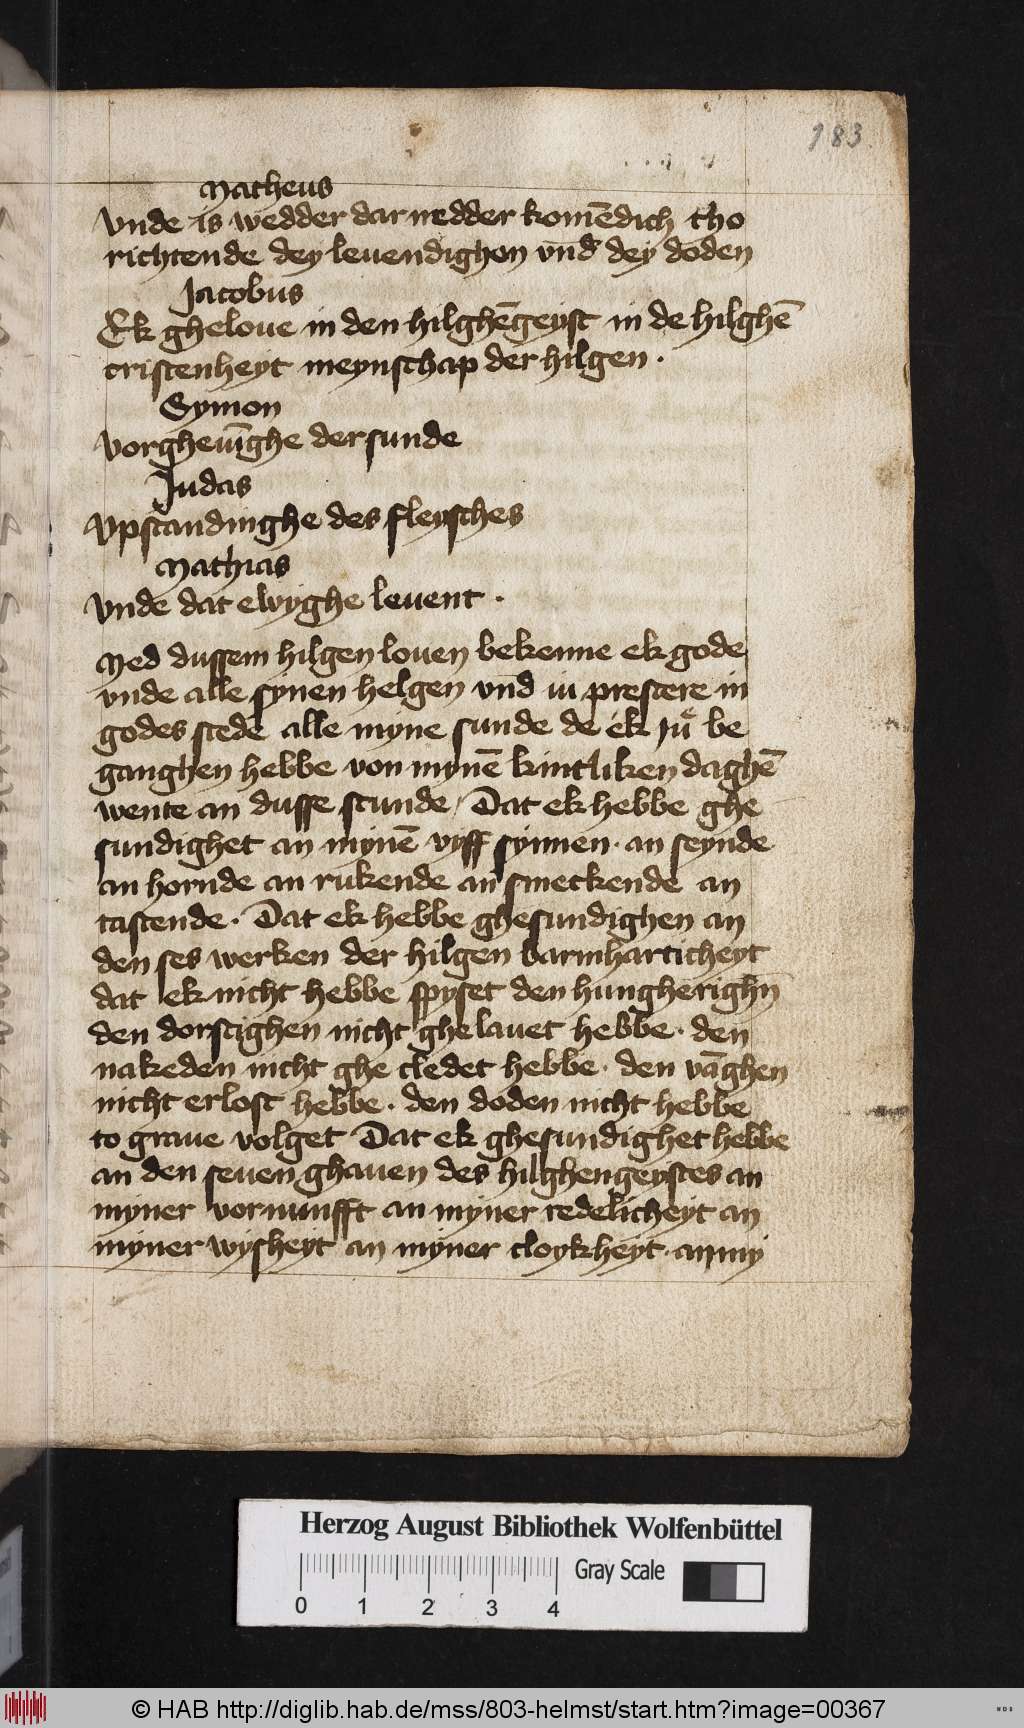 183
Matheus
vnde is wedder dar nedder komēdich tho
richtende dey leuendighon vnd dey doden
Jacobus
Ek gheloue in den hilghēgeyst in de hilghē
cristenheyt meynschap der hilgen .
Symon
vorgheuīghe der sunde
Judas
vpstandinghe des fleysches
Mathias
vnde dat ewyghe leuent .
Med dussem hilgen louen bekenne ek gode
vnde alle synen helgen vnd iu prestere in
godes stede alle myne sunde de ek be
ganghen hebbe von mynē kintliken daghē
wente an dusse stunde / Dat ek hebbe ghe
sundighet an mynē vyff synnen . an seynde
an hornde an rukende an smeckende an
tastende . Dat ek hebbe ghesundighen an
den ses werken der hilgen barmharticheyt
dat ek nicht hebbe spyset den hungherighn̄
den dorstighen nicht ghelauet hebbe . den
nakeden nicht ghe cledet hebbe . den vāghen
nicht erlost hebbe . den doden nicht hebbe
to graue volget Dat ek ghesundighet hebbe
an den seuen ghauen des hilghengeystes an
myner vornunfft an myner redelicheyt an
myner wysheyt an myner cloykheyt . an my
Herzog August Bibliothek Wolfenbüttel
Gray Scale
0 1 2 3 4
© HAB http://diglib.hab.de/mss/803-helmst/start.htm?image=00367